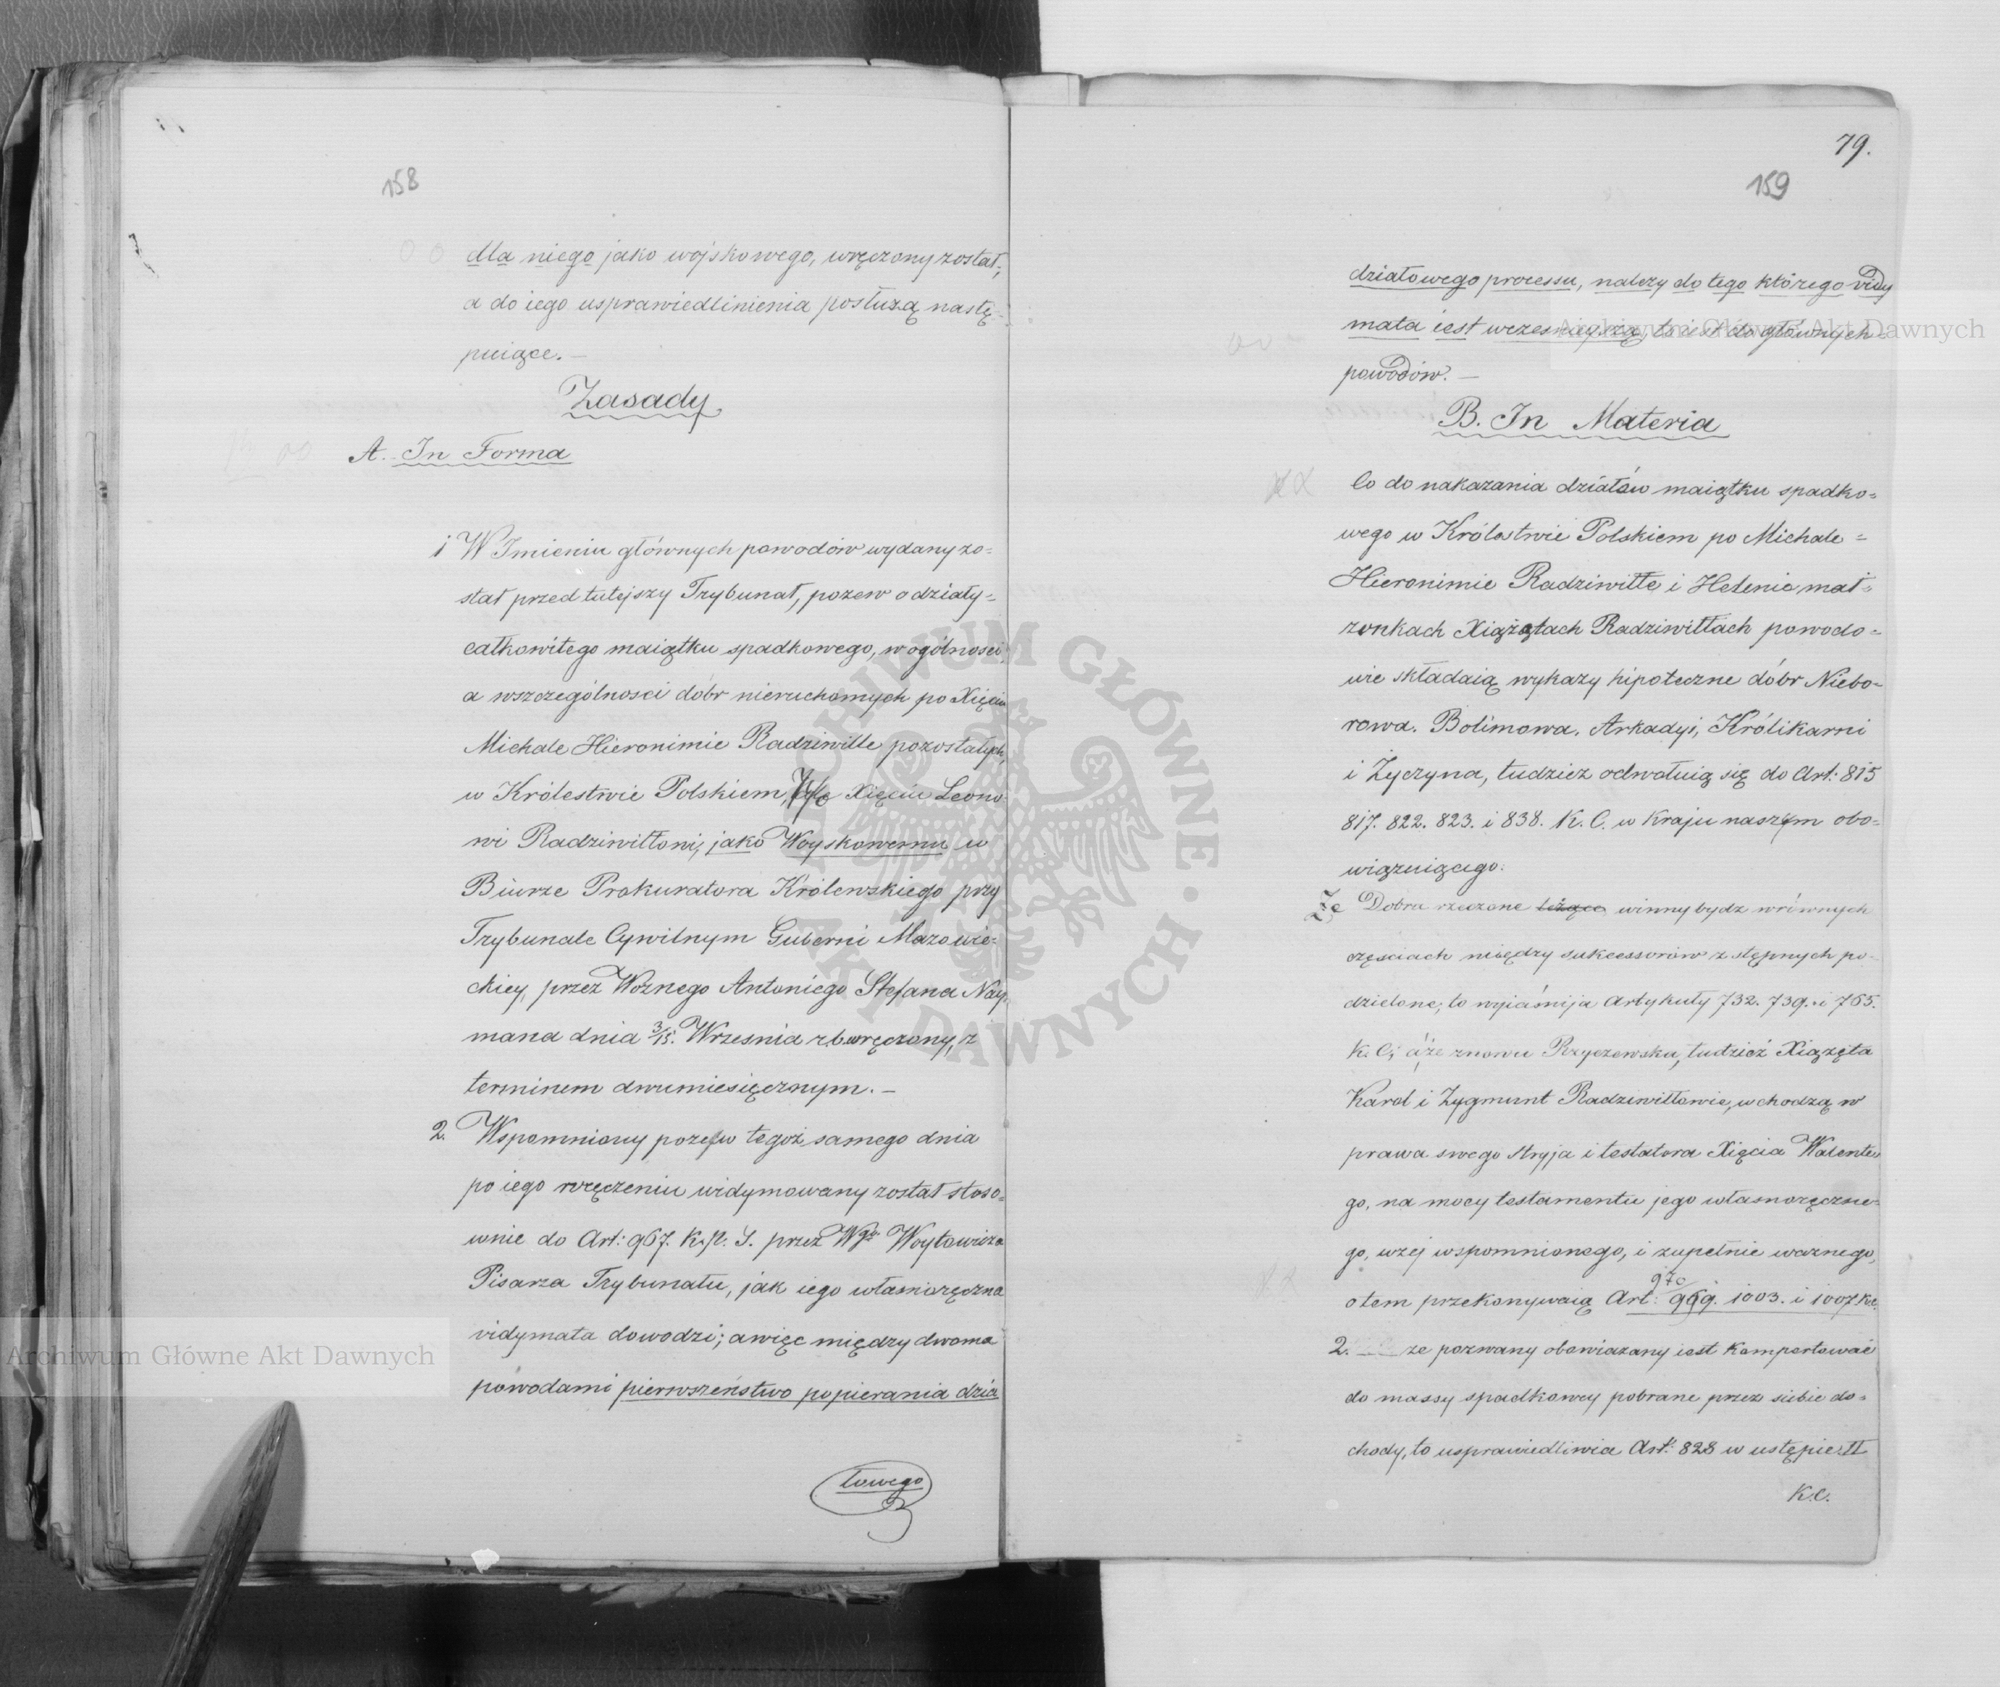 158
dla niego jako wojskowego, wręczony został,
a do iego usprawiedlinienia posłużą nastę=
puiące. —
Zasady
A. In Forma
1 W Imieniu głównych powodów wydany zo=
stał przed tutejszy Trybunał, pozew o działy=
całkowitego maiątku spadkowego, w ogólności
a wszczególności dóbr nieruchomych po Xięciu
Michale Hieronimie Radziwille pozostałych,
w Królestwie Polskiem, Xięciu Leono
wi Radziwiłłowi, jako Woyskowemu w
Biurze Prokuratora Królewskiego przy
Trybunale Cywilnym Guberni Mazowie=
ckiey, przez Woznego Antoniego Stefana Nay
mana dnia 3/15. Września r.b. wręczony, z
terminem dwumiesięcznym. —
2. Wspomniony pozew tegoż samego dnia
po iego wręczeniu widymowany został stoso=
wnie do Art: 967. K.p.S. przez Wgo. Woytowicza
Pisarza Trybunału, jak iego własnoręczna
vidymata dowodzi; a więc między dwoma
powodami pierwszeństwo popierania dzia
łowego
79.
159
działowego processu, należy do tego którego vidy
mata iest wczesnieyszą, to iest do głównych=
powodów. —
B. In Materia
Co do nakazania działów maiątku spadko=
wego w Królestwie Polskiem po Michale=
Hieronimie Radziwille i Helenie mał=
żonkach Xiążętach Radziwiłłach powodo=
wie składaią wykazy hipoteczne dóbr Niebo=
rowa. Bolimowa. Arkadyi, Królikarni
i Życzyna, tudzież odwołuią się do Art: 815
817. 822. 823. i 838. K. C. w Kraju naszym obo=
wiązuiącego.
Że Dobra rzeczone leżące winny bydz w równych
częsciach między sukcessorów zstępnych po=
dzielone, to wyiaśnija Artykuły 732. 739. i 765.
K. C; a że znowu Ryszewska, tudzież Xiążęta
Karol i Zygmunt Radziwiłłowie, wchodzą w
prawa swego stryja i testatora Xięcia Walente
go, na mocy testamentu jego własnoręczne=
go, wzej wspomnionego, i zupełnie ważnego,
970
o tem przekonywaią Art: 969. 1003. i 1007 K.C.
2. że pozwany obowiazany iest kompertować
do massy spadkowey pobrane przez siebie do=
chody, to usprawiedliwia Art: 828 w ustępie II
K.C.
Archiwum Główne Akt Dawnych
Archiwum Główne Akt Dawnych
ARCHIWUM GŁÓWNE AKT DAWNYCH